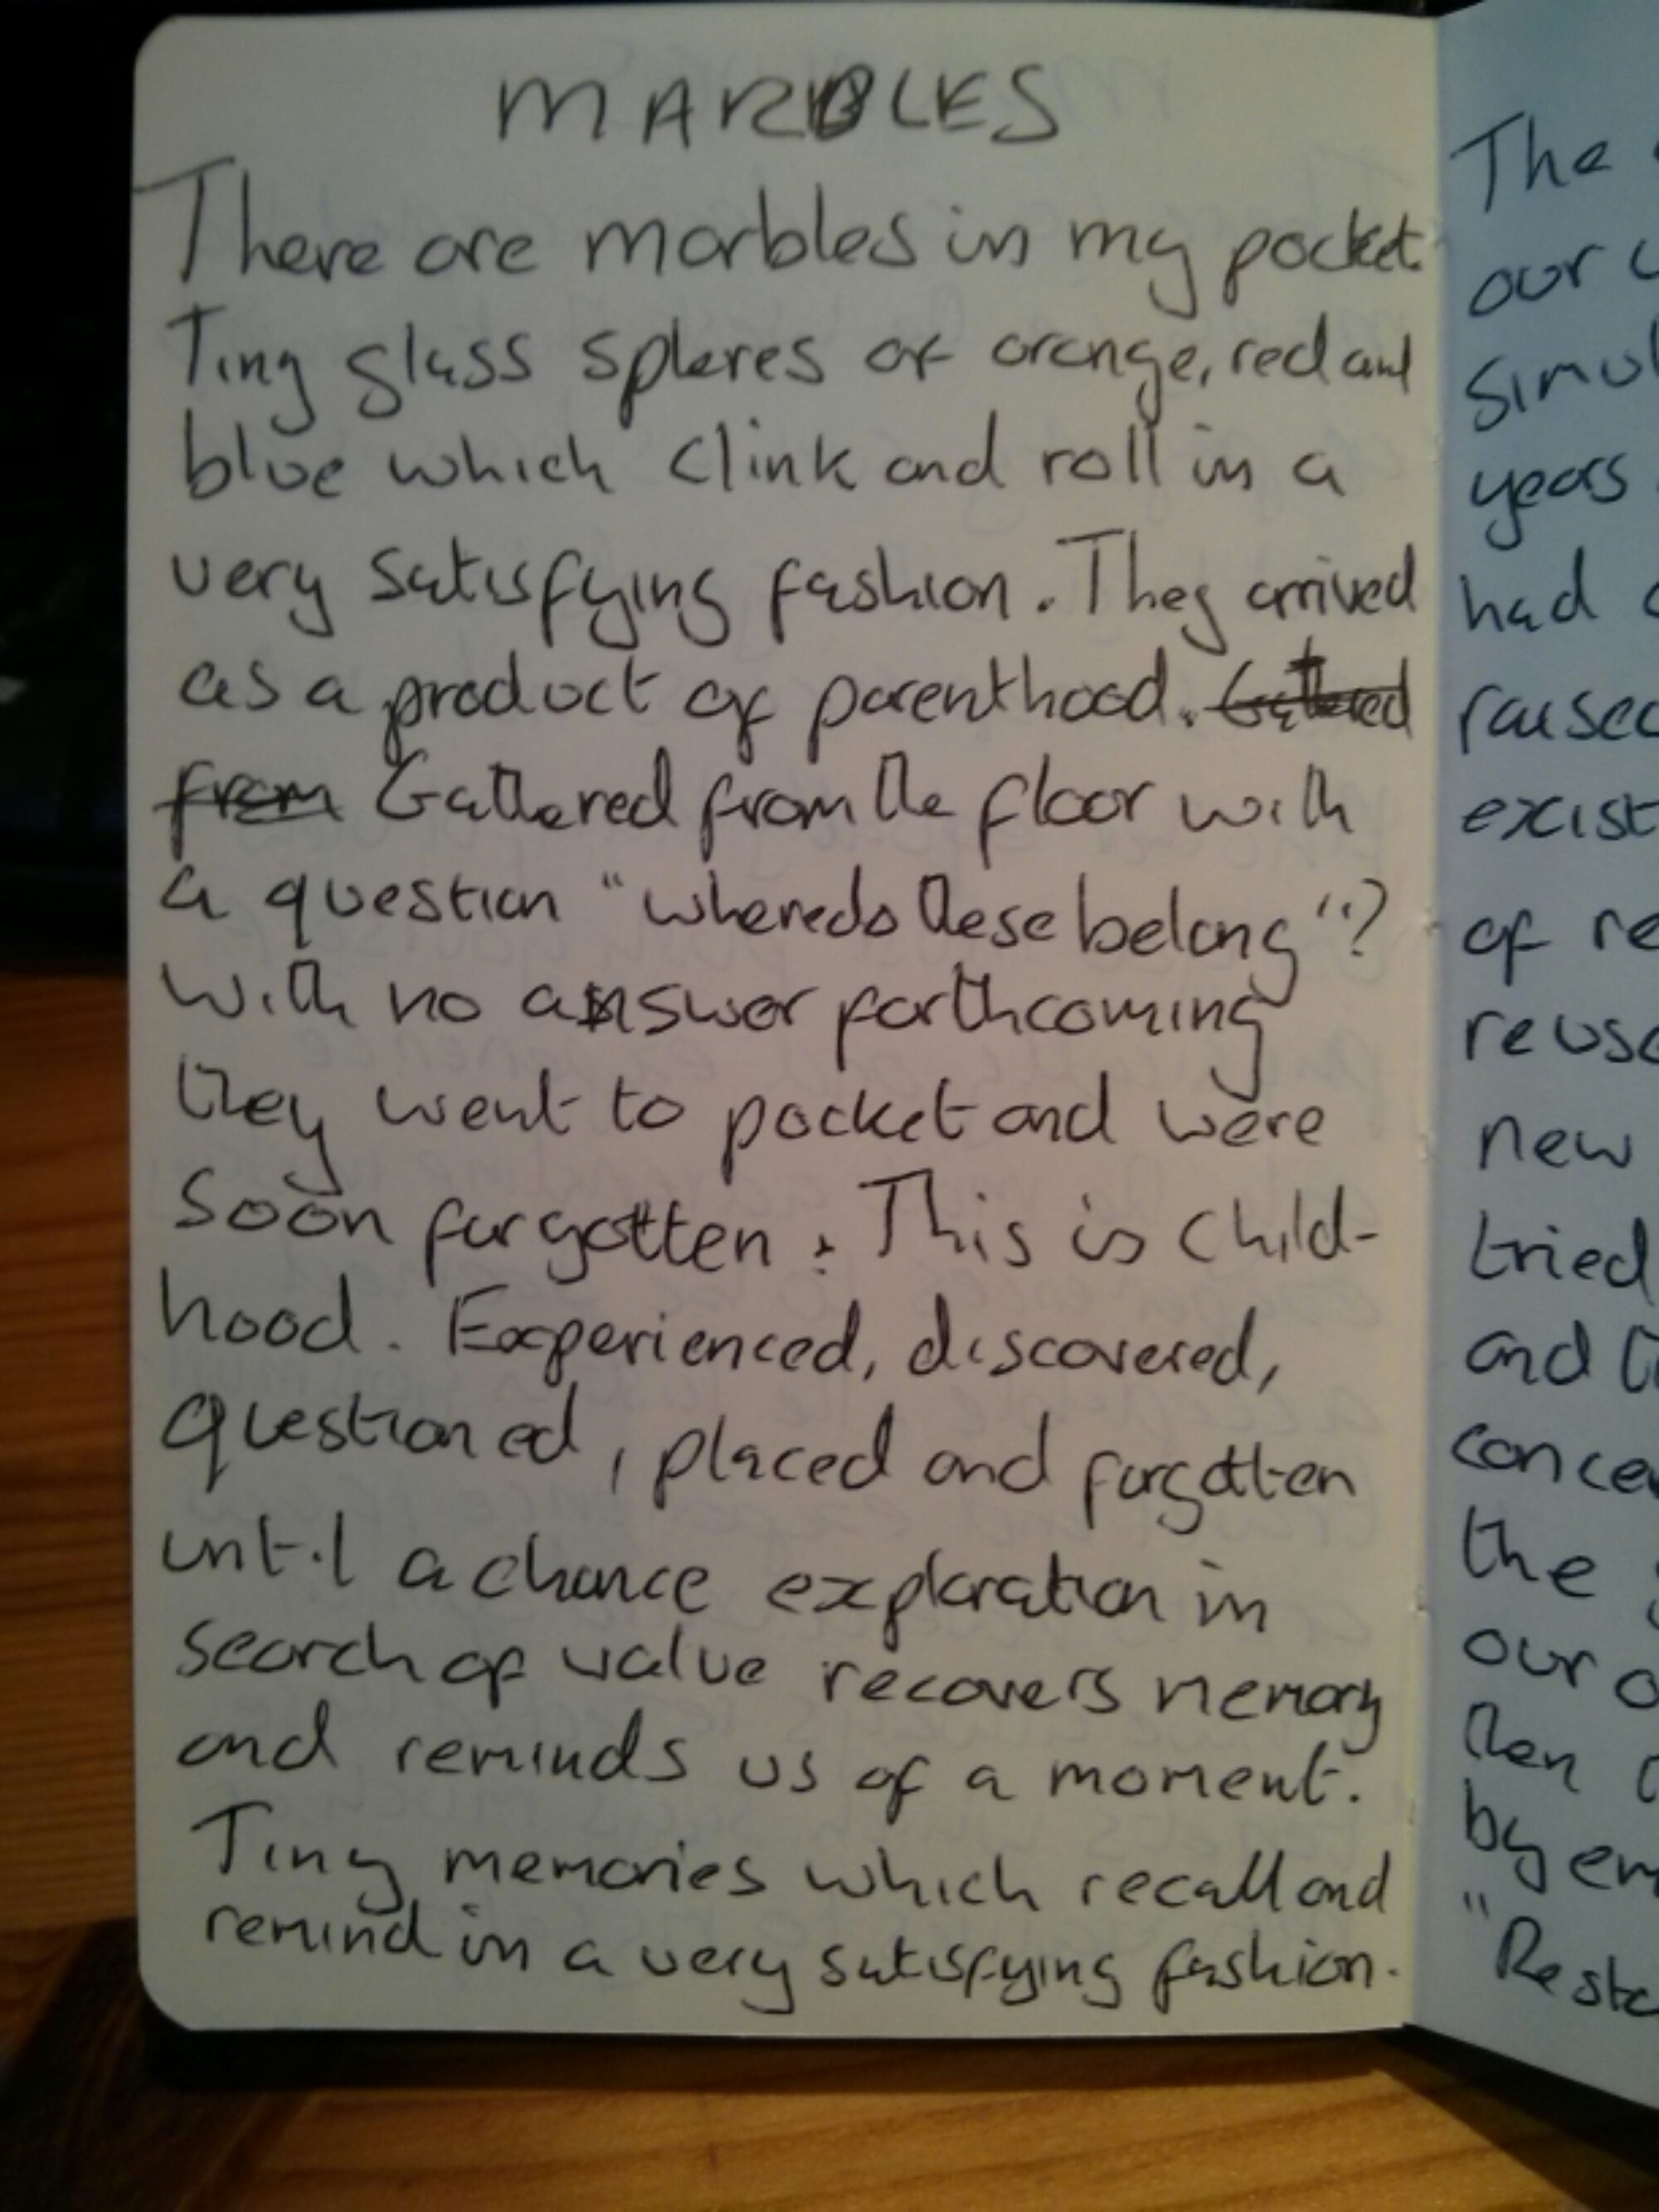 MARBLES
There are marbles in my pocket.
Tiny glass spheres of orange, red and
blue which clink and roll in a
very satisfying fashion. They arrived
as a product of parenthood. Gathered
from Gathered from the floor with
a question "where do these belong"?
With no answer forthcoming
they went to pocket and were
soon forgotten. This is child-
hood. Experienced, discovered,
questioned, placed and forgotten
until a chance exploration in
search of value recovers memory
and reminds us of a moment.
Tiny memories which recall and
remind in a very satisfying fashion.
The
our
years
had
raised
exist
of re
new
tried
and
the
our
then
by em